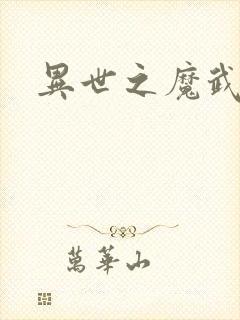 異世之魔武
萬華山